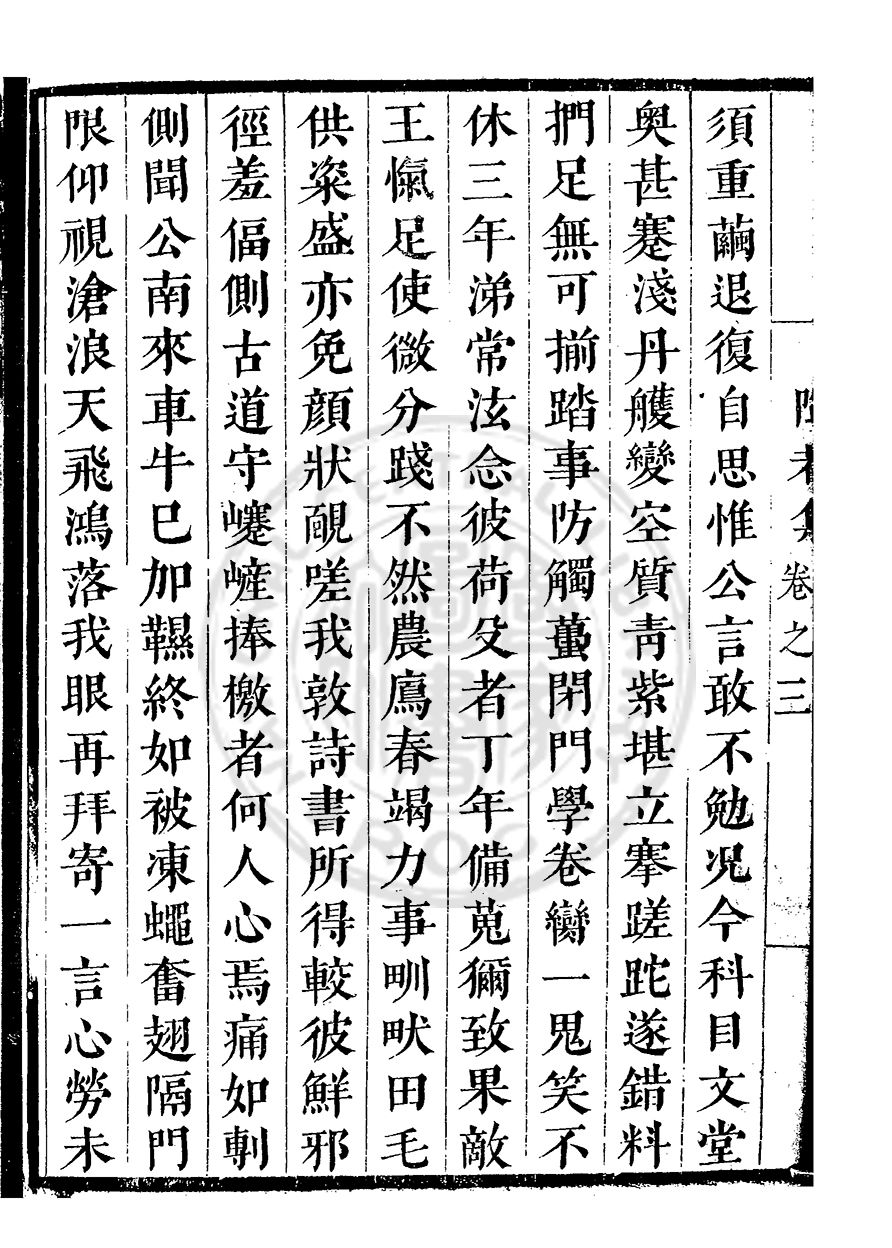 卷之三
須重繭退復自思惟公言敢不勉况今科目文堂
奥甚蹇淺丹艧變空質靑紫堪立搴蹉跎遂錯料
捫足無可揃踏事防觸蠆閉門學卷臠一鬼笑不
休三年涕常泫念彼荷殳者丁年備蒐獮致果敵
王愾足使微分踐不然農鳸春竭力事甽畎田毛
供粢盛亦免顏狀靦嗟我敦詩書所得較彼鮮邪
徑羞偪側古道守㠾嵼捧檄者何人心焉痛如剸
側聞公南來車牛巳加韅終如被凍蠅奮翅隔門
限仰視滄浪天飛鴻落我眼再拜寄一言心勞未